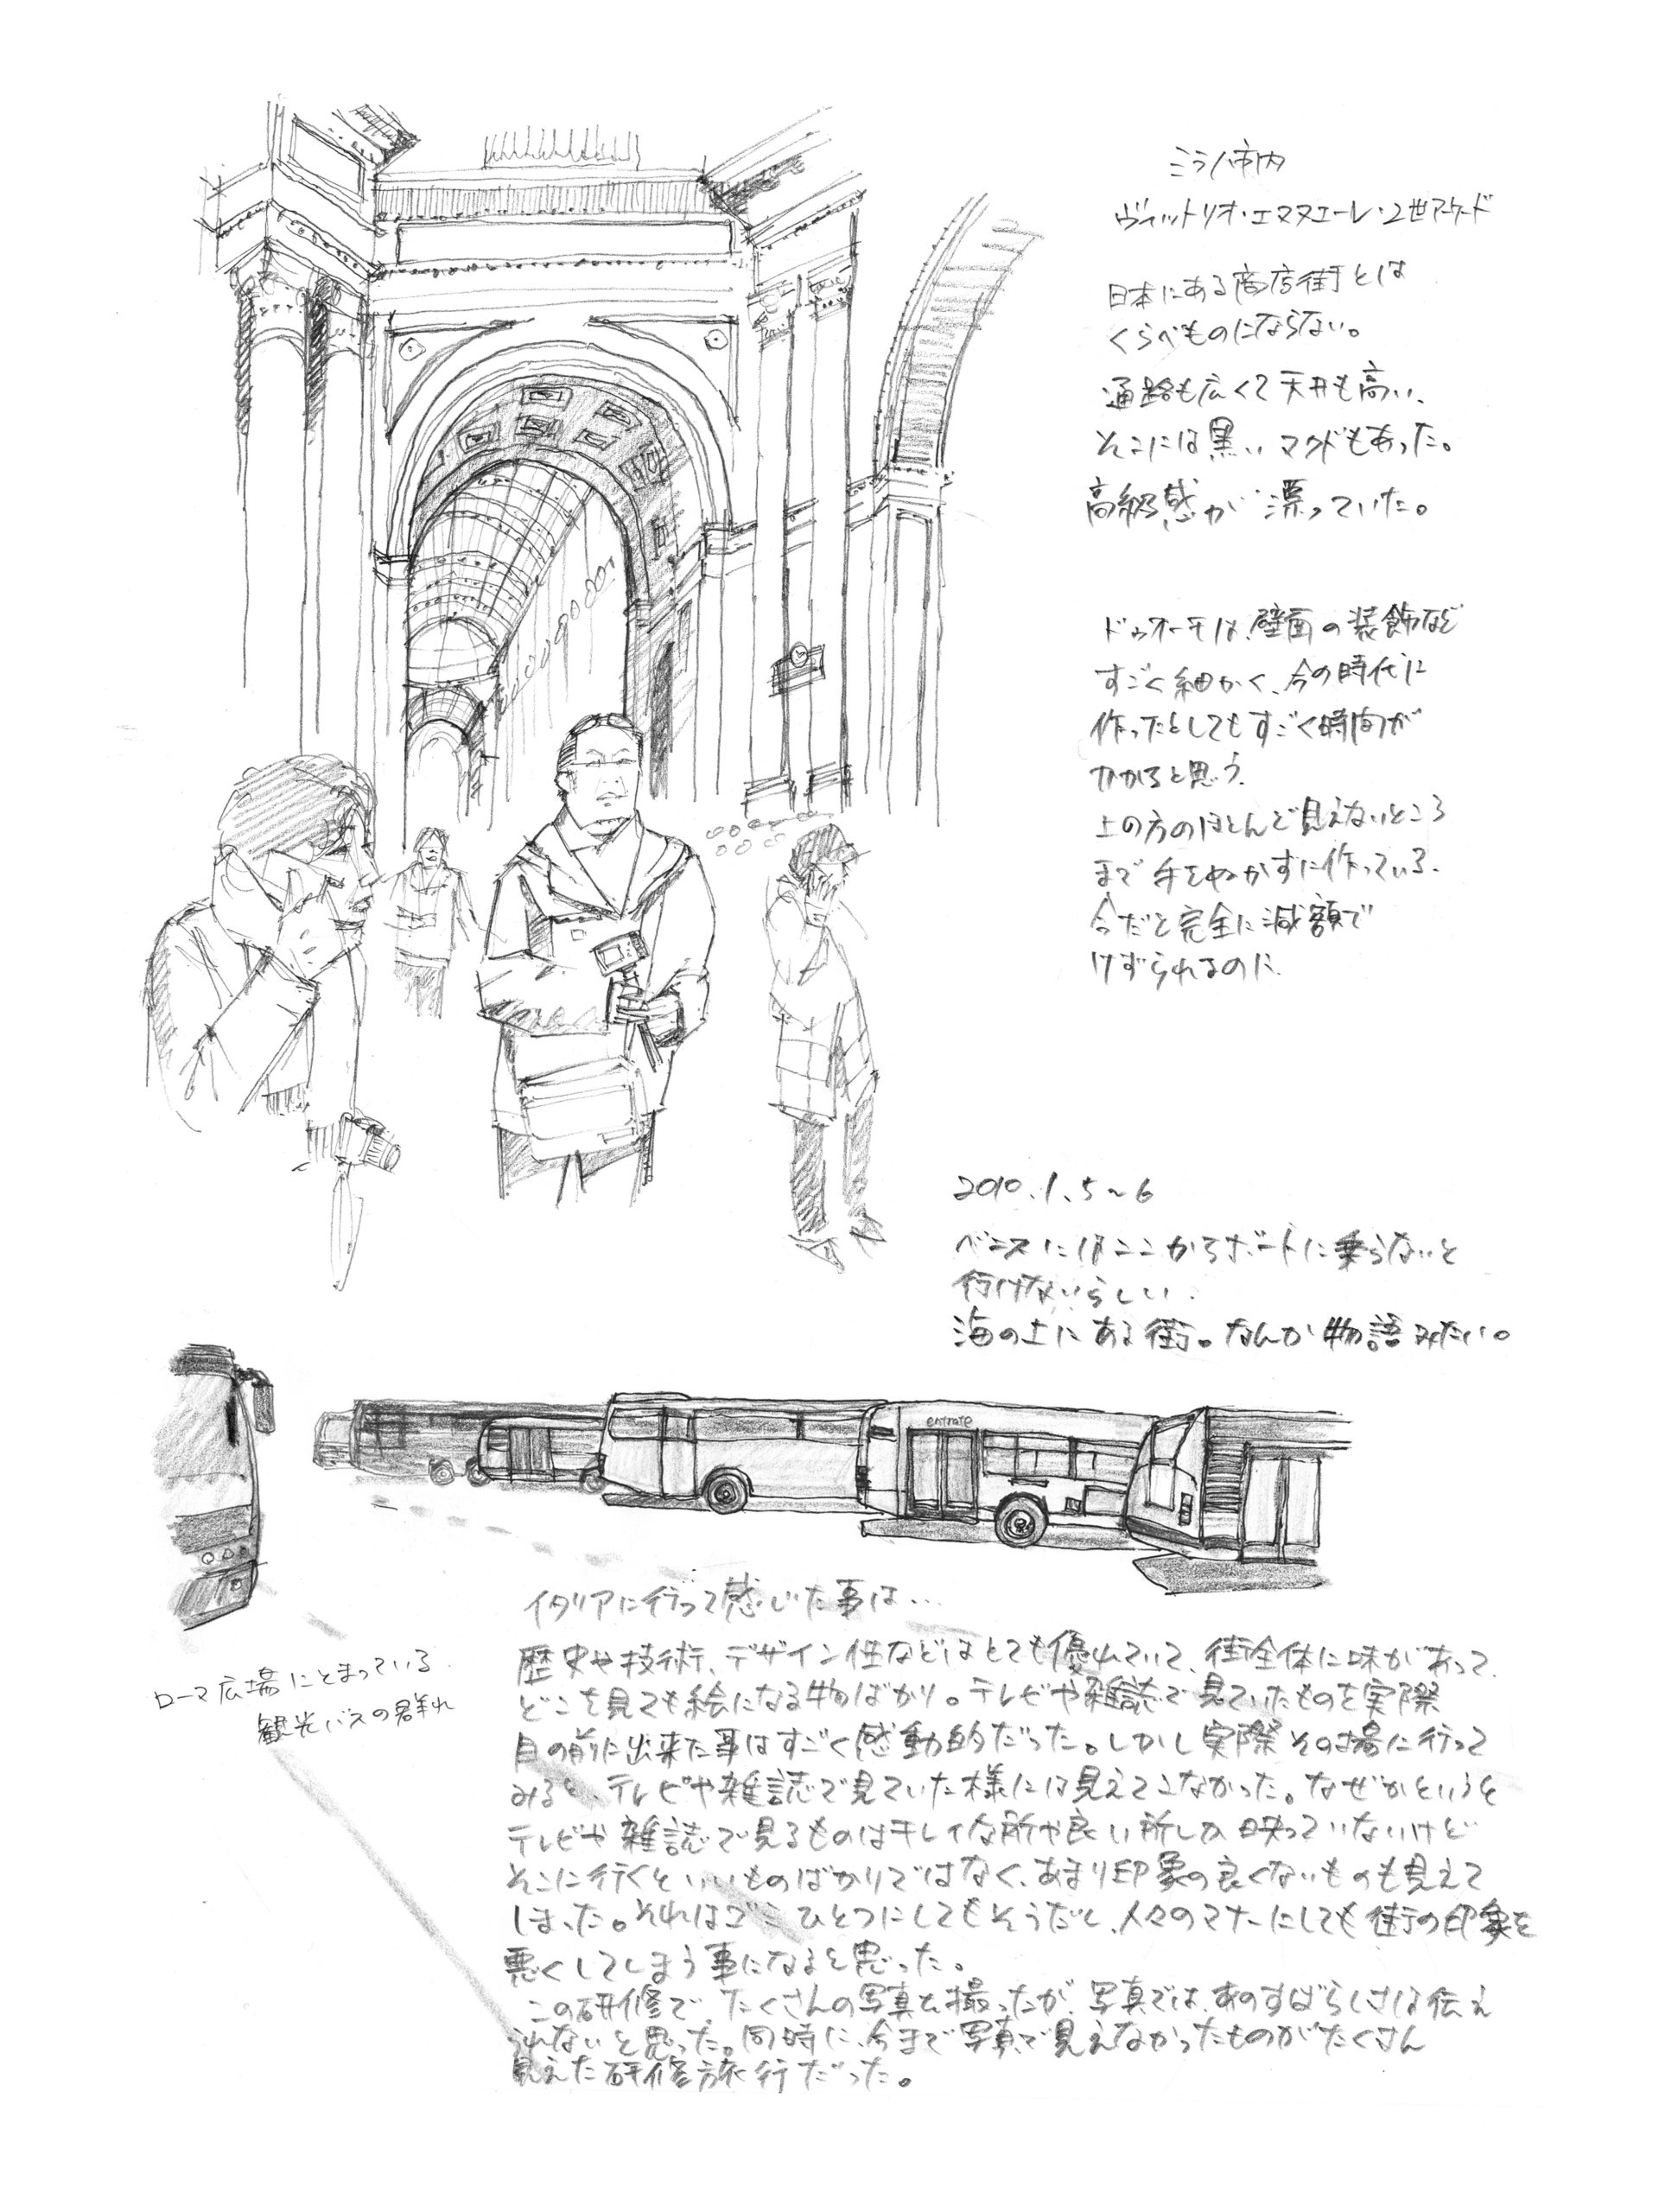 ミラノ市内
ヴィットリオ・エマヌエーレ・2世アーケード
日本にある商店街とは
くらべものにならない。
通路も広くて天井も高い、
そこには黒いマクドもあった。
高級感が漂っていた。
ドゥオーモは、壁面の装飾など
すごく細かく、今の時代に
作ったとしてもすごく時間が
かかると思う。
上の方のほとんど見えないところ
まで手をぬかずに作っている。
今だと完全に減額で
けずられるのに。
2010.1.5~6
ベニスにはここからボートに乗らないと
行けないらしい。
海の上にある街。なんか物語みたい。
entrate
イタリアに行って感じた事は…
ローマ広場にとまっている
観光バスの群れ
歴史や技術、デザイン性などはとても優れていて、街全体に味があって、
どこを見ても絵になる物ばかり。テレビや雑誌で見ていたものを実際
目の前に出来た事はすごく感動的だった。しかし実際その場に行って
みると、テレビや雑誌で見ていた様には見えてこなかった。なぜかというと
テレビや雑誌で見るものはキレイな所や良い所しか映っていないけど
そこに行くといいものばかりではなく、あまり印象の良くないものも見えて
しまった。それはゴミひとつにしてもそうだし、人々のマナーにしても街の印象を
悪くしてしまう事になると思った。
この研修で、たくさんの写真を撮ったが、写真では、あのすばらしさは伝え
られないと思った。同時に、今まで写真で見えなかったものがたくさん
見えた研修旅行だった。